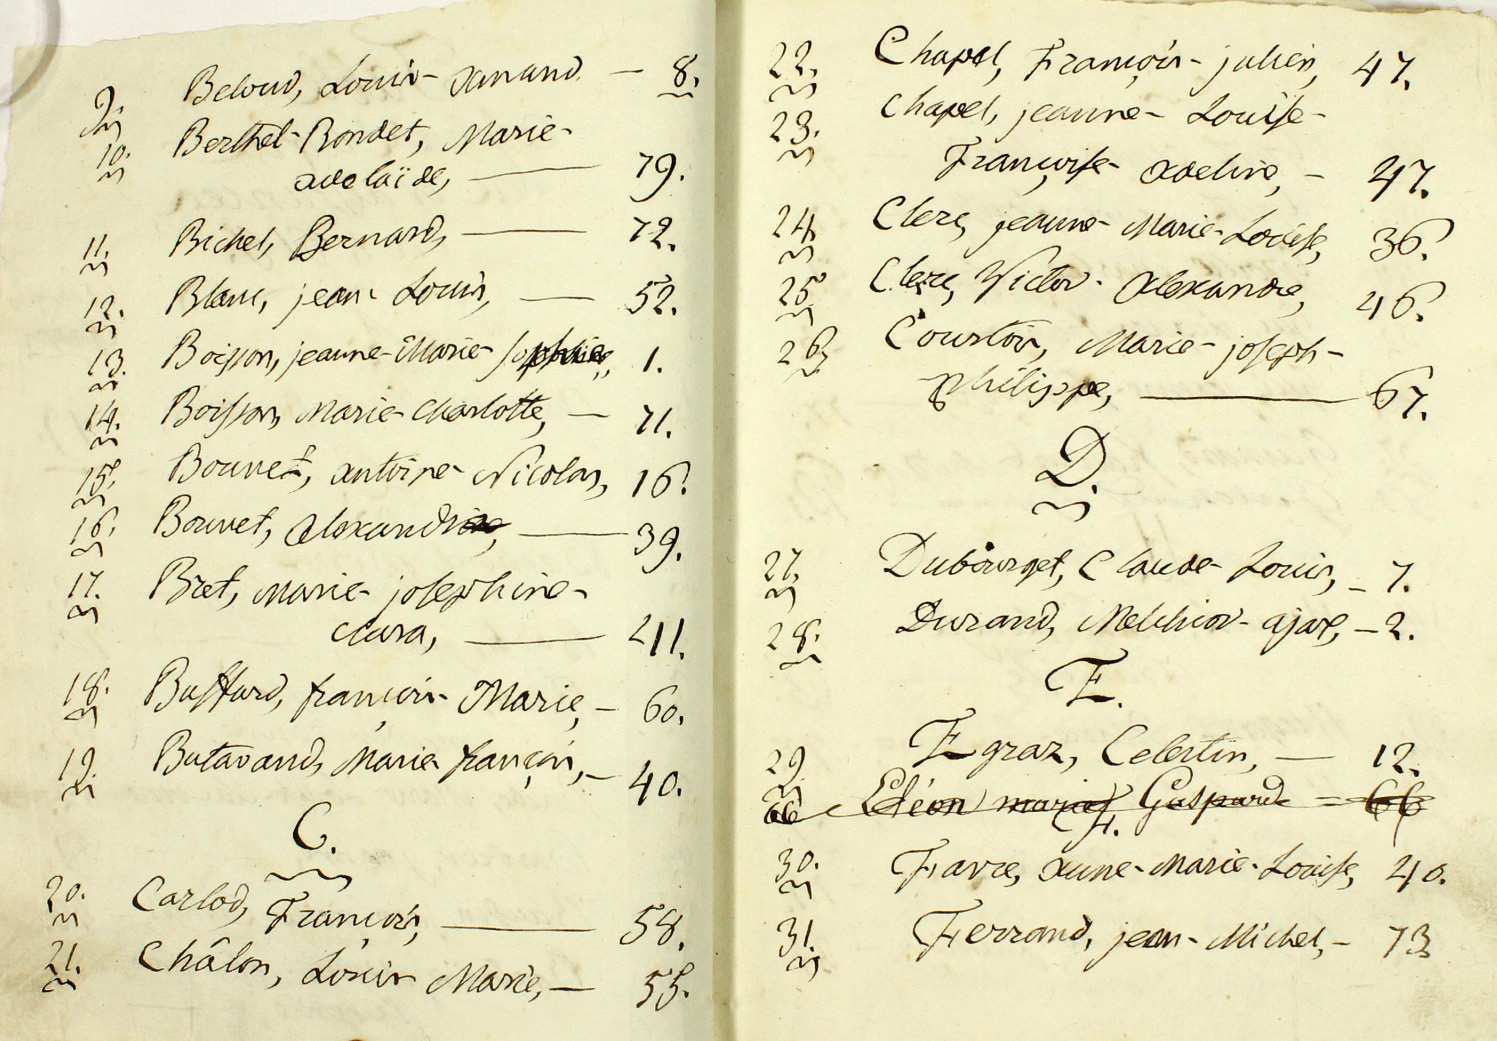 9. Beloud, Louis- amand — 8.
10. Berthet-Bondet, Marie-
adelaïde, — 79.
11. Bichet, Bernard, — 72.
12. Blanc, jean Louis, — 52.
13. Boisson, jeanne-Marie- 1.
14. Boisson, Marie-Charlotte, — 71.
15. Bouvet, antoine-Nicolas, 16.
16. Bouvet, alexandrine, — 39.
17. Bret, Marie-josephine-
clara, — 211.
18. Buffard, françois-Marie, — 60.
19. Butavand, Marie françois, — 40.
C.
20. Carlod, François, — 58.
21. Châlon, Louis Marie, — 55.
22. Chapel, François-julien, 47.
23. Chapel, jeanne-Louise-
Françoise-adeline, — 47.
24. Clerc, jeanne-Marie-Louise, 36.
25. Clerc, Victor-alexandre, 46.
26. Courtois, Marie-joseph-
philippe, — 67.
D.
27. Dubourget, Claude-Louis, — 7.
28. Durand, Melchior-ajax, — 2.
E.
29. Egraz, Celestin, — 12.
66 Eléon marie Gaspard = 66
F.
30. Favre, anne-Marie-Louise, 40.
31. Ferrand, jean-Michel, — 73